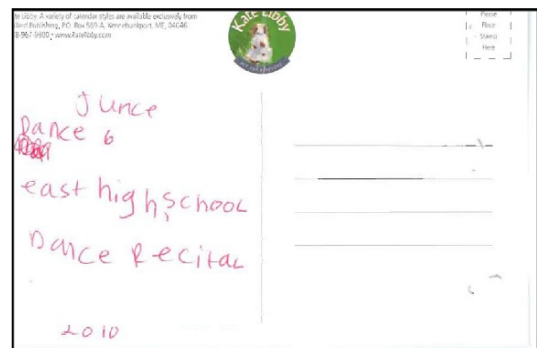 te Libby. A variety of calendar styles are available exclusively from
Publishing, P.O. Box 569-A, Kennebunkport, ME, 04046
www.KateLibby.com
Kate Libby
Please
Place
Stamp
Here
Junce
Dance 6
east high school
Dance Recital
2010